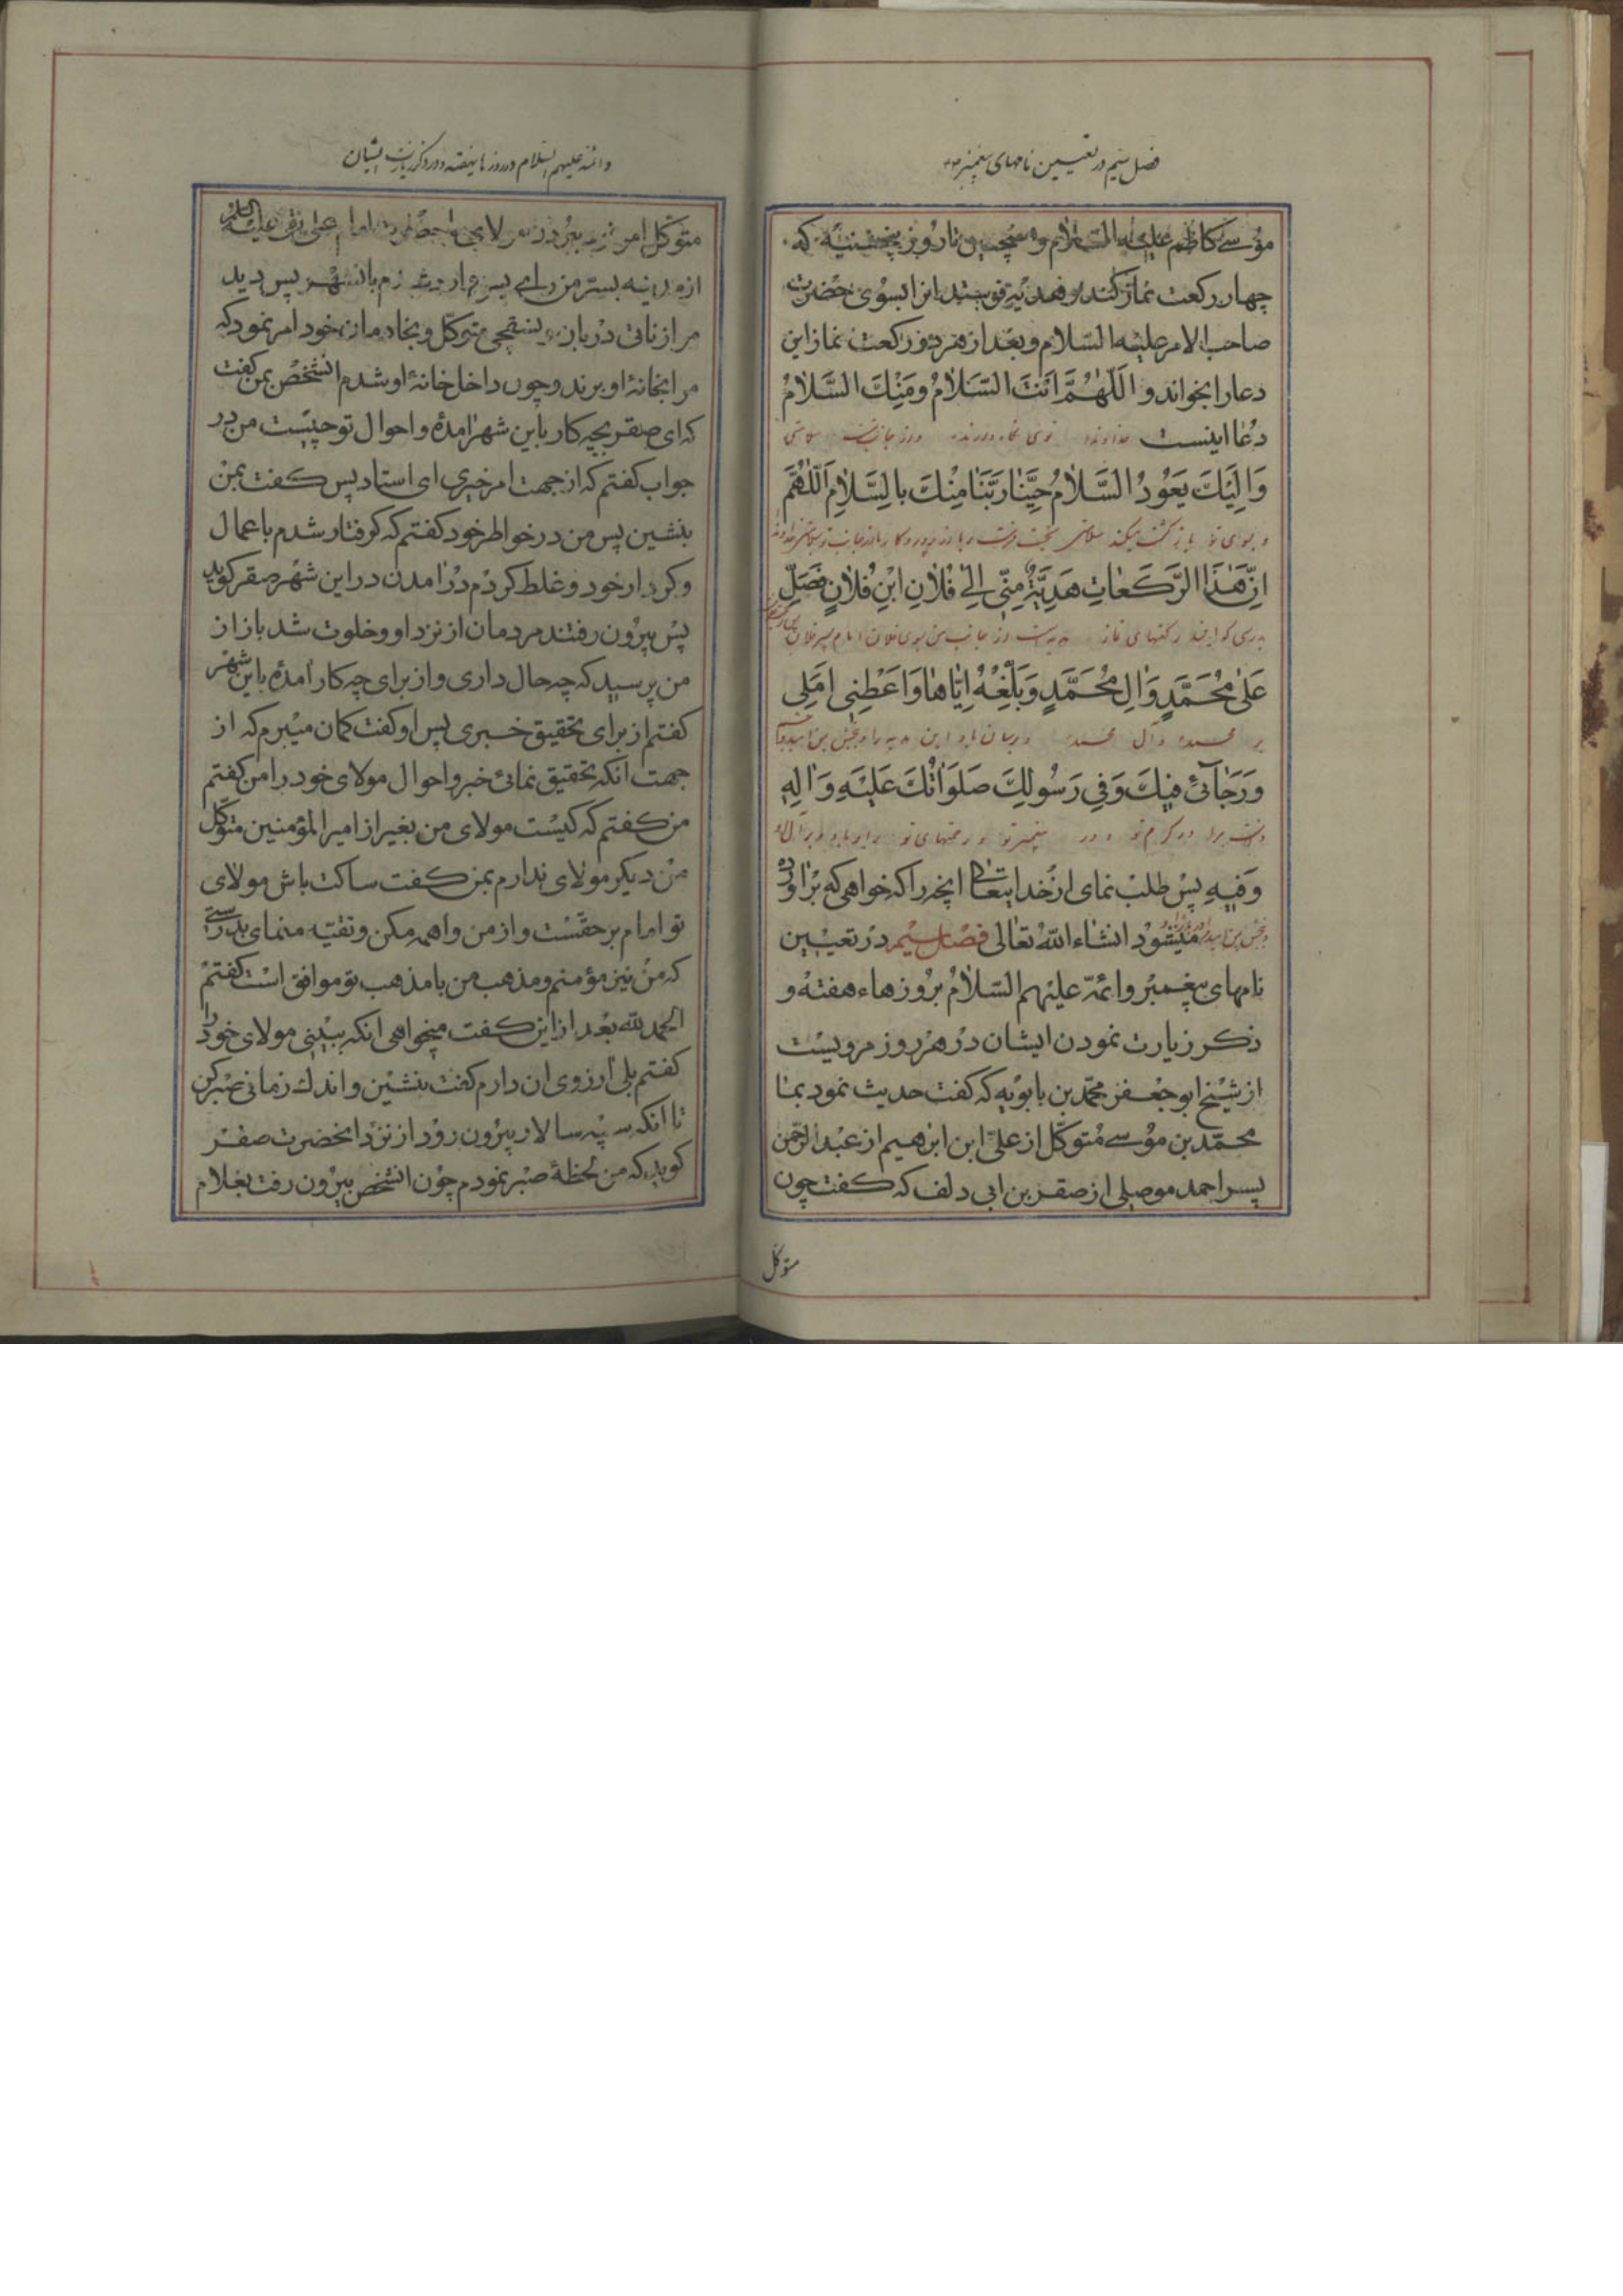 فصل سیم در تعیین نامهای پیغمبر
موسی کاظم علیه السلام و همچنین تا روز پنجشنبه که
چهار رکعت نماز کند و هدیه فرستد انرا بسوی حضرت
صاحب الامر علیه السلام و بعد از هر دو رکعت نماز این
دعا را بخواند و اَللّٰهُمَّ اَنْتَ السَّلَامُ وَمِنْكَ السَّلَامُ
دعا اینست خداوندا توئی سلامتی
وَاِلَيْكَ يَعُوْدُ السَّلَامُ حَيِّنَا رَبَّنَا مِنْكَ بِالسَّلَامِ اَللّٰهُمَّ
و بسوی تو بازگشت میکند سلامتی
اِنَّ هٰذَا الرَّكَعَاتِ هَدِيَّةٌ مِنّٖي اِلٰى فُلَانِ ابْنِ فُلَانٍ فَصَلِّ
بدرستی که این رکعتهای نماز هدیه ایست از جانب من بسوی فلان امام پسر فلان
عَلٰى مُحَمَّدٍ وَاٰلِ مُحَمَّدٍ وَبَلِّغْهُ اِيَّاهَا وَاَعْطِنٖي اَمَلٖي
بر محمد و آل محمد و برسان باو این هدیه را و ببخش بمن
وَرَجَائٖي فٖيكَ وَفٖي رَسُولِكَ صَلَوَاتُكَ عَلَيْهِ وَاٰلِهِ
مرا در کرم تو و در پیغمبر تو رحمتهای تو بر او باد و بر آل او
وَفٖيهِ پس طلب نمای از خدایتعالی انچه را که خواهی که براورده
میشود انشاء الله تعالی فصل سیم در تعیین
نامهای پیغمبر و ائمه علیهم السلام بروزهاء هفته و
ذکر زیارت نمودن ایشان در هر روز مرویست
از شیخ ابو جعفر محمد بن بابویه که کفت حدیث نمود بما
محمد بن موسی متوکل از علی ابن ابرهیم از عبد الرحمن
پسر احمد موصلی از صقر بن ابی دلف که کفت چون
متوکل
وائمه علیهم السلام در روزهای هفته و در ذکر زیارت ایشان
متوکل امر نمود ببردن مولای ما حضرت امام علی نقی علیه السلام
از مدینه بسر من رای پس بانشهر پس دید
مرا زرافی دربان متوکل و بخادمان خود امر نمود که
مرا بخانهٔ او برند و چون داخل خانهٔ او شدم انشخص بمن کفت
که ای صقر بچه کار باین شهر امدهٔ و احوال تو چیست من در
جواب کفتم که از جهت امر خیری ای استاد پس کفت بمن
بنشین پس من در خواطر خود کفتم که کرفتار شدم باعمال
و کردار خود و غلط کردم در امدن در این شهر صقر کوید
پس بیرون رفتند مردمان از نزد او و خلوت شد باز از
من پرسید که چه حال داری و از برای چه کار امدهٔ باین شهر
کفتم از برای تحقیق خبری پس او کفت کمان میبرم که از
جهت انکه تحقیق نمائی خبر و احوال مولای خود را من کفتم
من کفتم که کیست مولای من بغیر از امیر المؤمنین متوکل
من دیکر مولای ندارم بمن کفت ساکت باش مولای
تو امام بر حقست و از من واهمه مکن و تقیه منمای بدرستی
که من نیز مؤمنم و مذهب من با مذهب تو موافق است کفتم
الحمد لله بعد از این کفت میخواهی انکه ببینی مولای خود را
کفتم بلی ارزوی ان دارم کفت بنشین و اندک زمانی صبر کن
تا انکه سپه سالار بیرون رود از نزد انحضرت صقر
کوید که من لحظهٔ صبر نمودم چون انشخص بیرون رفت بغلام